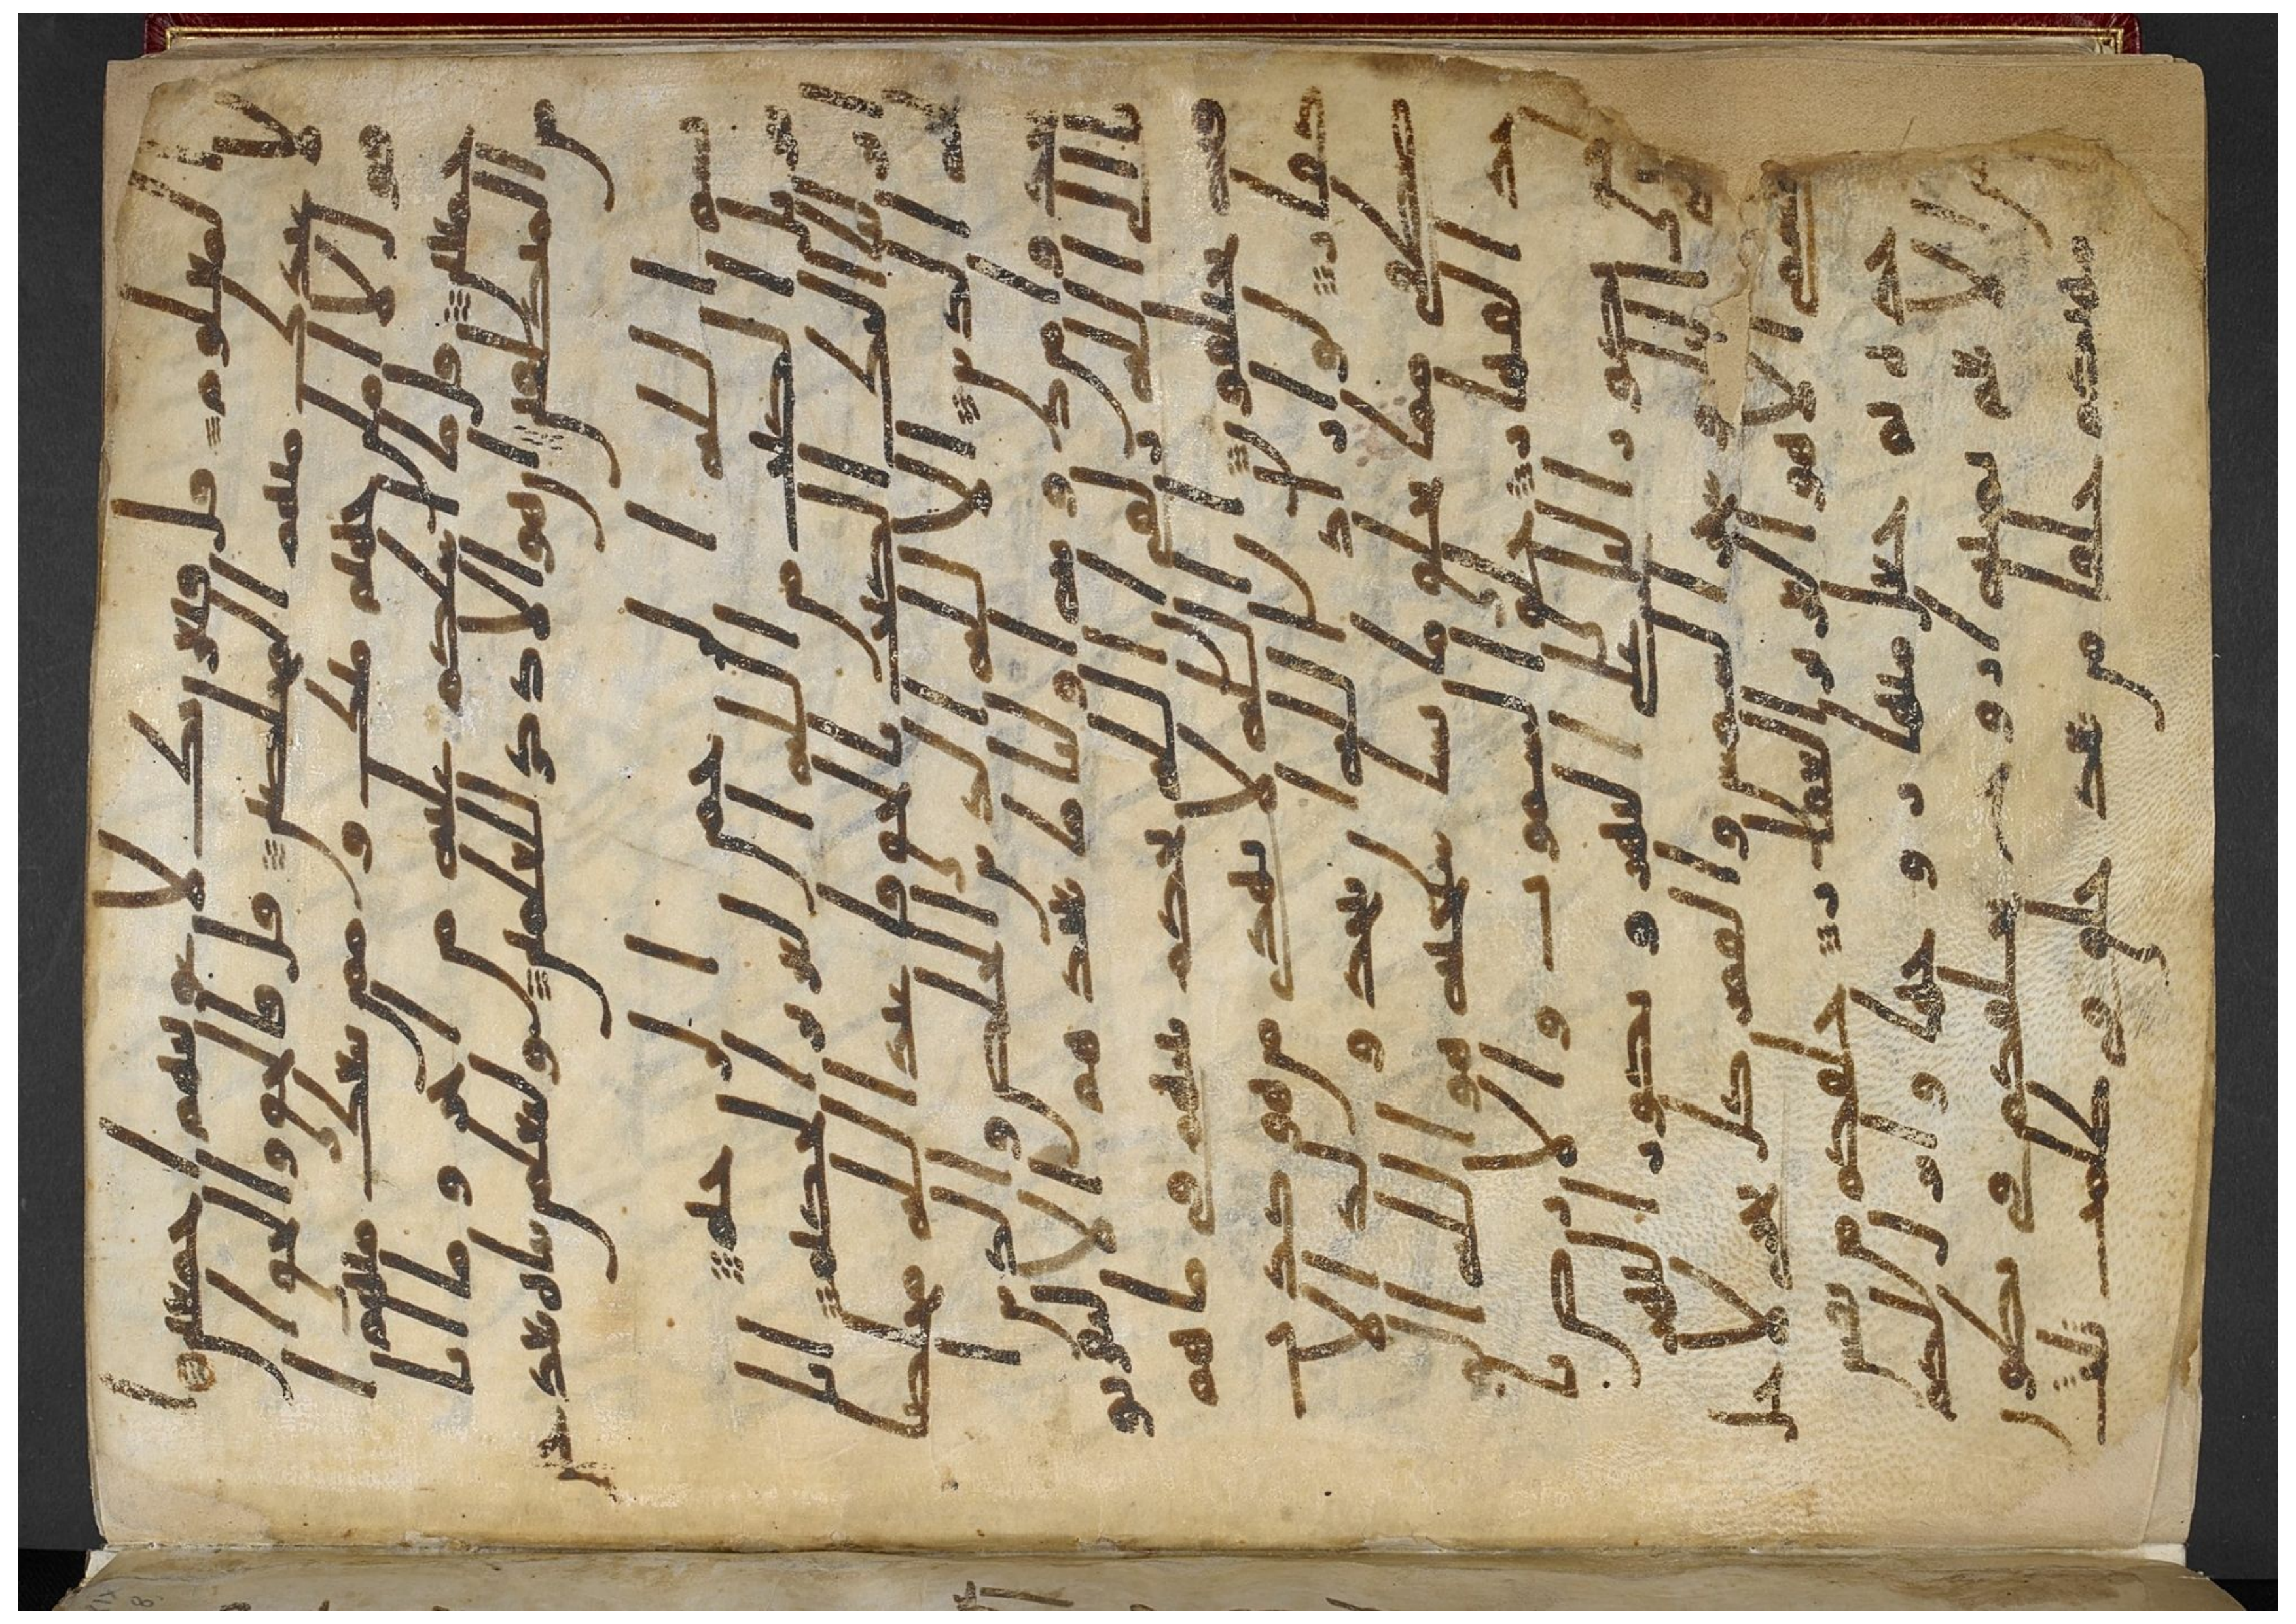 لمعلوم قال فبعزتك لاغوينهم اجمعين ا
لا عبادك منهم المخلصين قال فالحق والحق ا
قول لاملن جهنم منك وممن تبعك منهم ا
جمعين قل ما اسلكم عليه من اجر وما انا
من المتكلفين ان هو الا ذكر للعلمين ولتعلمن نباه بعد حين
بسم الله الرحمن الرحيم
تنزيل الكتب من الله العزيز الحكيم انا
انزلنا اليك الكتب بالحق فاعبد الله مخلصا
له الدين الا لله الدين الخالص والذين ا
تخذوا من دونه اوليا ما نعبدهم الا ليقربو
نا الى الله زلفى ان الله يحكم بينهم في ما هم
فيه يختلفون ان الله لا يهدي من هو كذب
كفار لو اراد الله ان يتخذ ولدا لا
صطفى مما يخلق ما يشا سبحنه هو الله ا
لوحد القهار خلق السموت والارض
بالحق يكور اليل على النهر ويكور النهر
على اليل وسخر الشمس والقمر كل يجري لاجل
مسمى الا هو العزيز الغفر خلقكم من نفس
وحدة ثم جعل منها زوجها وانزل لكم
من الانعم ثمنية ازوج يخلقكم في بطون
امهتكم خلقا من بعد خلق في ظلمت ثلث